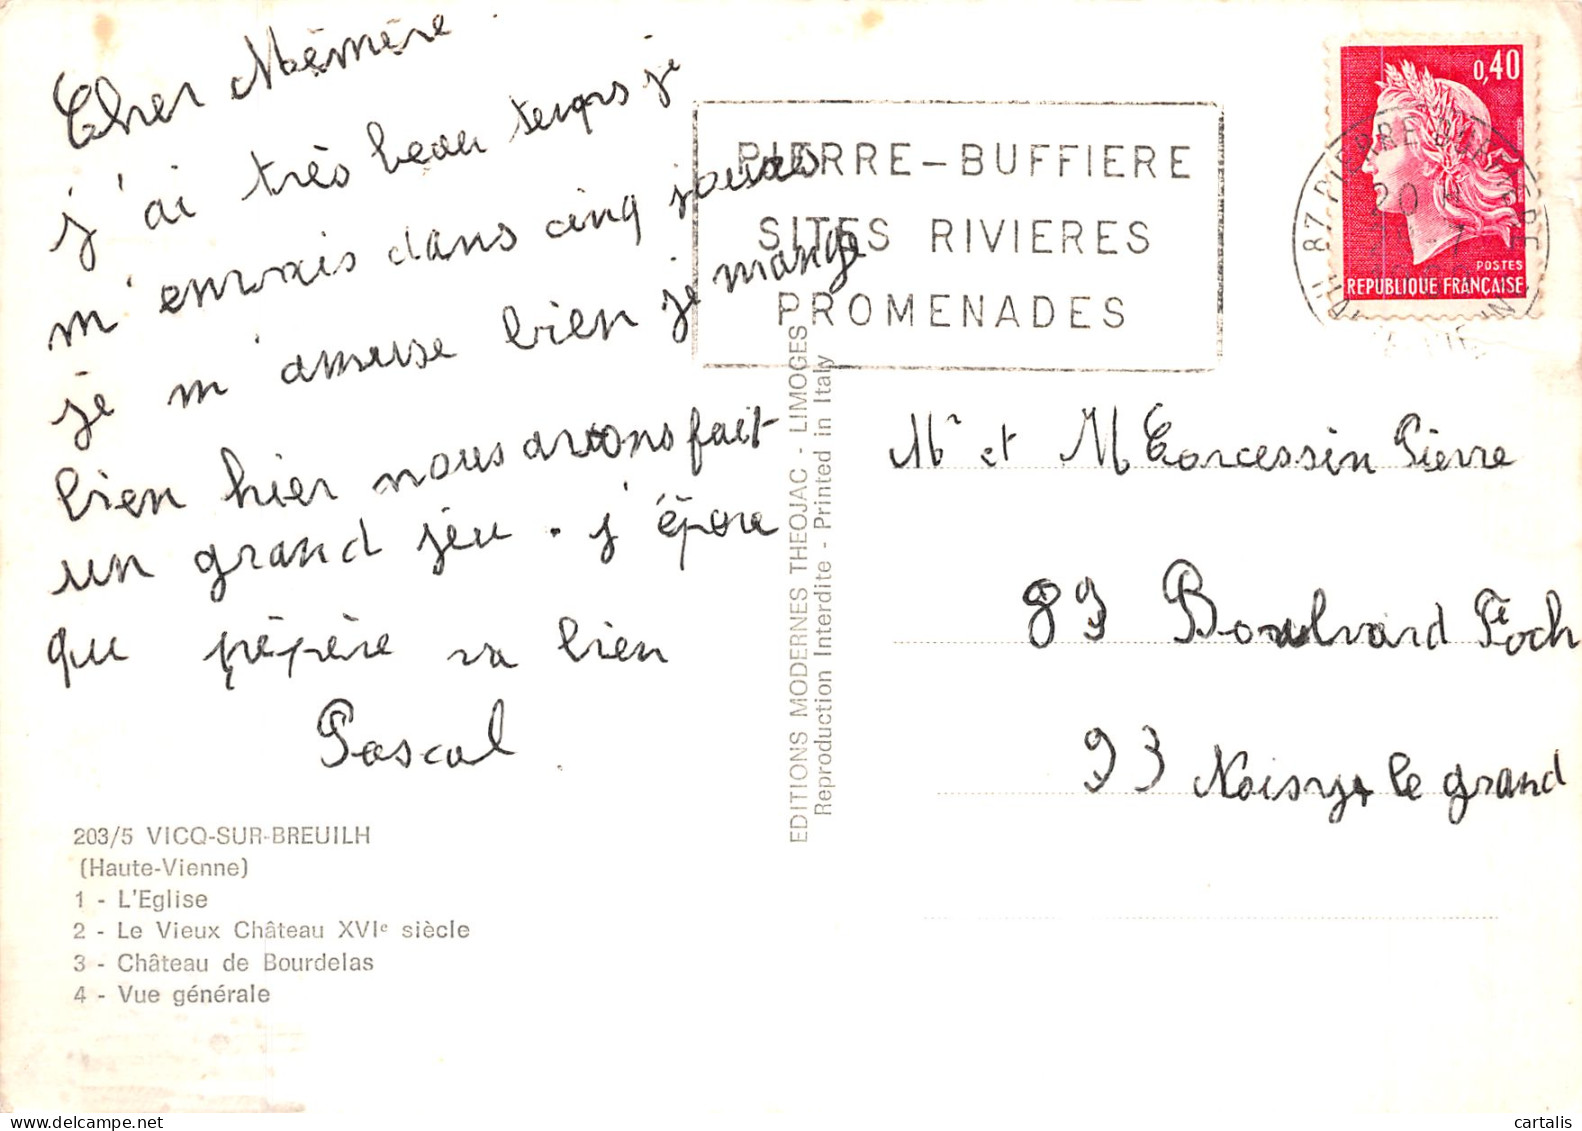 Cher Mémère
j'ai très beau temps je
m'envais dans cinq jours
je m'amuse bien je mange
bien hier nous avons fait
un grand jeu. j'épère
que pépère va bien
Pascal
203/5 VICQ-SUR-BREUILH
(Haute-Vienne)
1 - L'Eglise
2 - Le Vieux Château XVIe siècle
3 - Château de Bourdelas
4 - Vue générale
EDITIONS MODERNES THEOJAC - LIMOGES
Reproduction Interdite - Printed in Italy
PIERRE-BUFFIERE
SITES RIVIERES
PROMENADES
0,40
POSTES
REPUBLIQUE FRANÇAISE
87 PIERRE BUFFIERE
20 H
Mr et M Corcessin Pierre
89 Boulvard Foch
93 Noisy le grand
cartalis